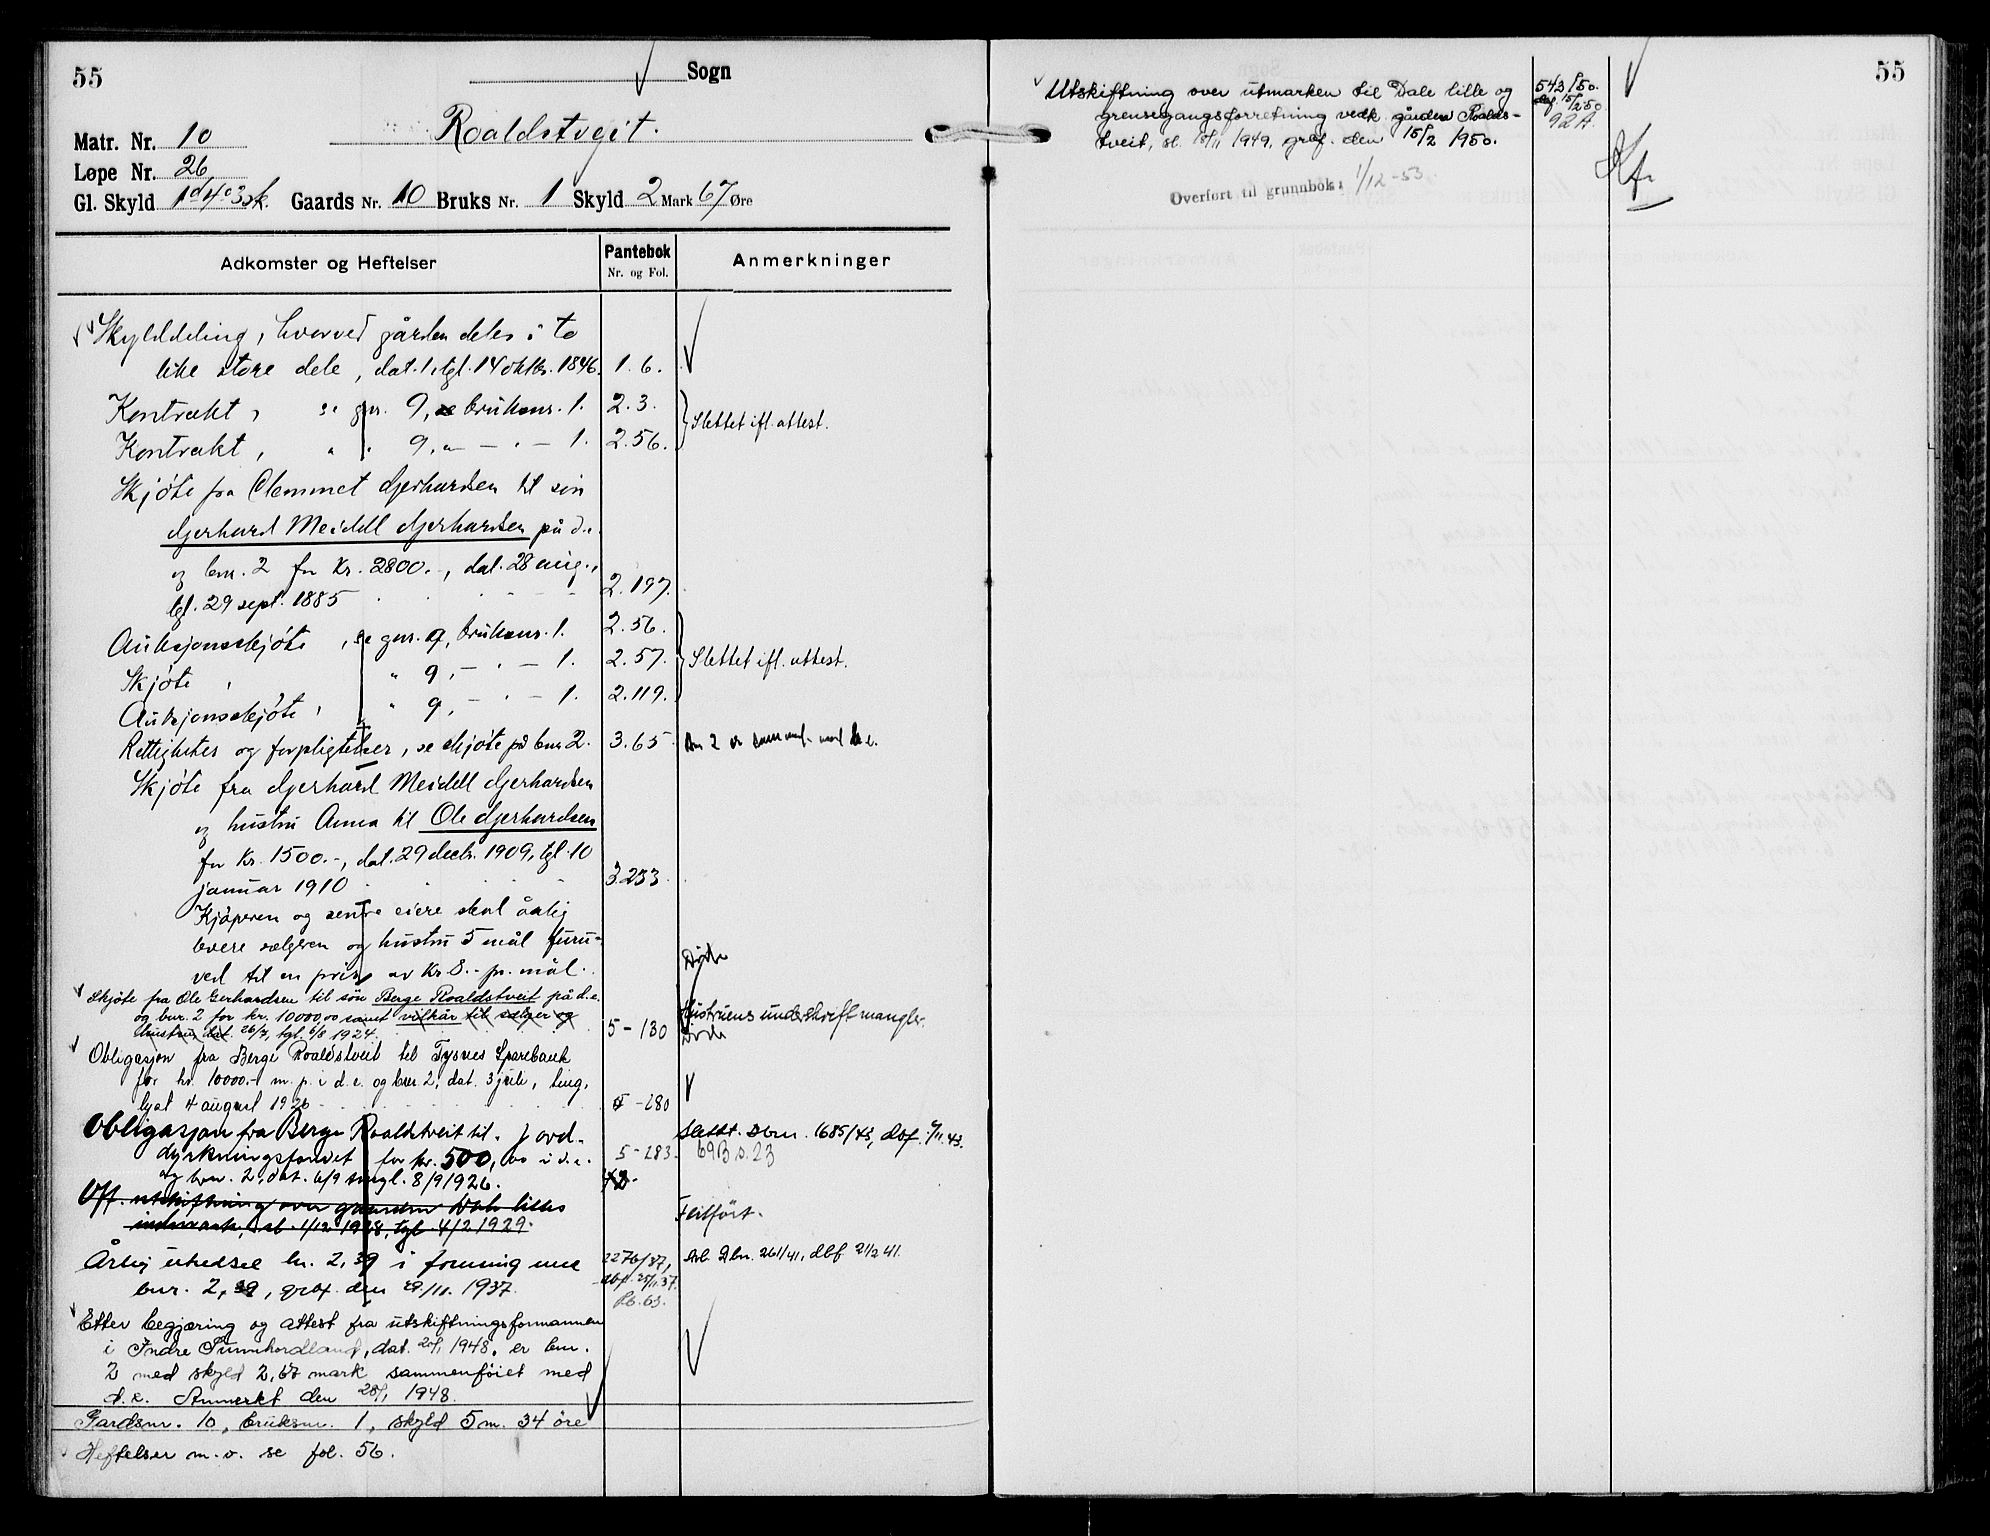 55
Sogn
Roaldstveit.
Matr. Nr. 10
Løpe Nr. 26
Gl. Skyld 1 d 4 o 3 sk. Gaards Nr. 10 Bruks Nr. 1 Skyld 2 Mark 67 Øre
Adkomster og Heftelser
Pantebok
Nr. og Fol.
Anmerkninger
Skylddeling, hvorved gården deles i to
like store dele, dat. 1, tgl. 14 oktbr. 1846. 1. 6.
Kontrakt, se gnr. 9, bruksnr. 1. 2. 3.
Slettet ifl. attest.
Kontrakt, " " 9, " — " — 1. 2. 56.
Skjøte fra Clemmet Gjerhardsen til søn
Gjerhard Meidell Gjerhardsen på d.e.
og bnr. 2 for kr. 2800.-, dat. 28 aug.,
tgl. 29 sept. 1885 2. 197.
Auksjonsskjøte, se gnr. 9, bruksnr. 1. 2. 56.
Skjøte, " 9, — " — 1. 2. 57. Slettet ifl. attest.
Auksjonsskjøte, " 9, — " — 1. 2. 119.
Rettigheter og forpligtelser, se skjøte på bnr. 2. 3. 65. Bnr 2 er sammenf. med d.e.
Skjøte fra Gjerhard Meidell Gjerhardsen
og hustru Anna til Ole Gjerhardsen
for kr. 1500.-, dat. 29 decbr. 1909, tgl. 10
januar 1910 3. 253.
Kjøperen og senere eiere skal årlig
levere sælgeren og hustru 5 mål furu-
ved til en pris av kr 8.- pr. mål. Døde
Skjøte fra Ole Gerhardsen til søn Berge Roaldstveit på d.e.
og bnr. 2 for kr. 10000,00 samt vilkår til sælger og
hustru, dat. 26/7, tgl. 6/8 1924. 5 - 130
Hustruens underskrift mangler.
Døde
Obligasjon fra Berge Roaldstveit til Tysnes Sparebank
for kr. 10000.- m. p. i d. e. og bnr. 2, dat. 3 juli, ting-
lyst 4 august 1926 5 - 280
Obligasjon fra Berge Roaldstveit til Jord-
dyrkningsfondet for kr. 500,00 i d.e. 5 - 283.
og bnr. 2, dat. 6/9 tingl. 8/9 1926.
Slettet. Dbnr. 1685/43, dbf. 9/11.43.
69B s. 23
Off. utskiftning over gaarden Dale lilles
indmark, sl. 1/12 1928, tgl. 4/2 1929.
Feilført.
Årlig utredsel kr. 2,39 i forening med
bnr. 2, 39, gref. den 29/11. 1937.
2276/37,
dbf. 25/11.37.
Pb. 63.
Avl. Dbn. 261/41, dbf. 21/2 41.
Etter begjæring og attest fra utskiftningsformannen
i Indre Sunnhordland, dat. 20/1 1948, er bnr.
2 med skyld 2,67 mark sammenføiet med
d.e. Anmerkt den 28/1 1948.
Gardsnr. 10, bruksnr. 1, skyld 5 m. 34 øre
Heftelser m.v. se fol. 56.
55
Utskiftning over utmarken til Dale lille og
grensegangsforretning vedk. gården Roalds-
tveit, sl. 15/11 1949, gref. den 15/2 1950.
543/50.
dbf. 15/2 50
92A.
Overført til grunnbok: 1/12-53